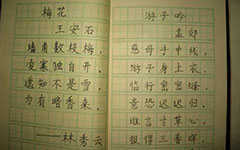 梅花
王安石
墙角数枝梅,
凌寒独自开,
遥知不是雪,
为有暗香来。
——林秀云
游子吟
孟郊
慈母手中线,
游子身上衣,
临行密密缝,
意恐迟迟归,
谁言寸草心,
报得三春晖。